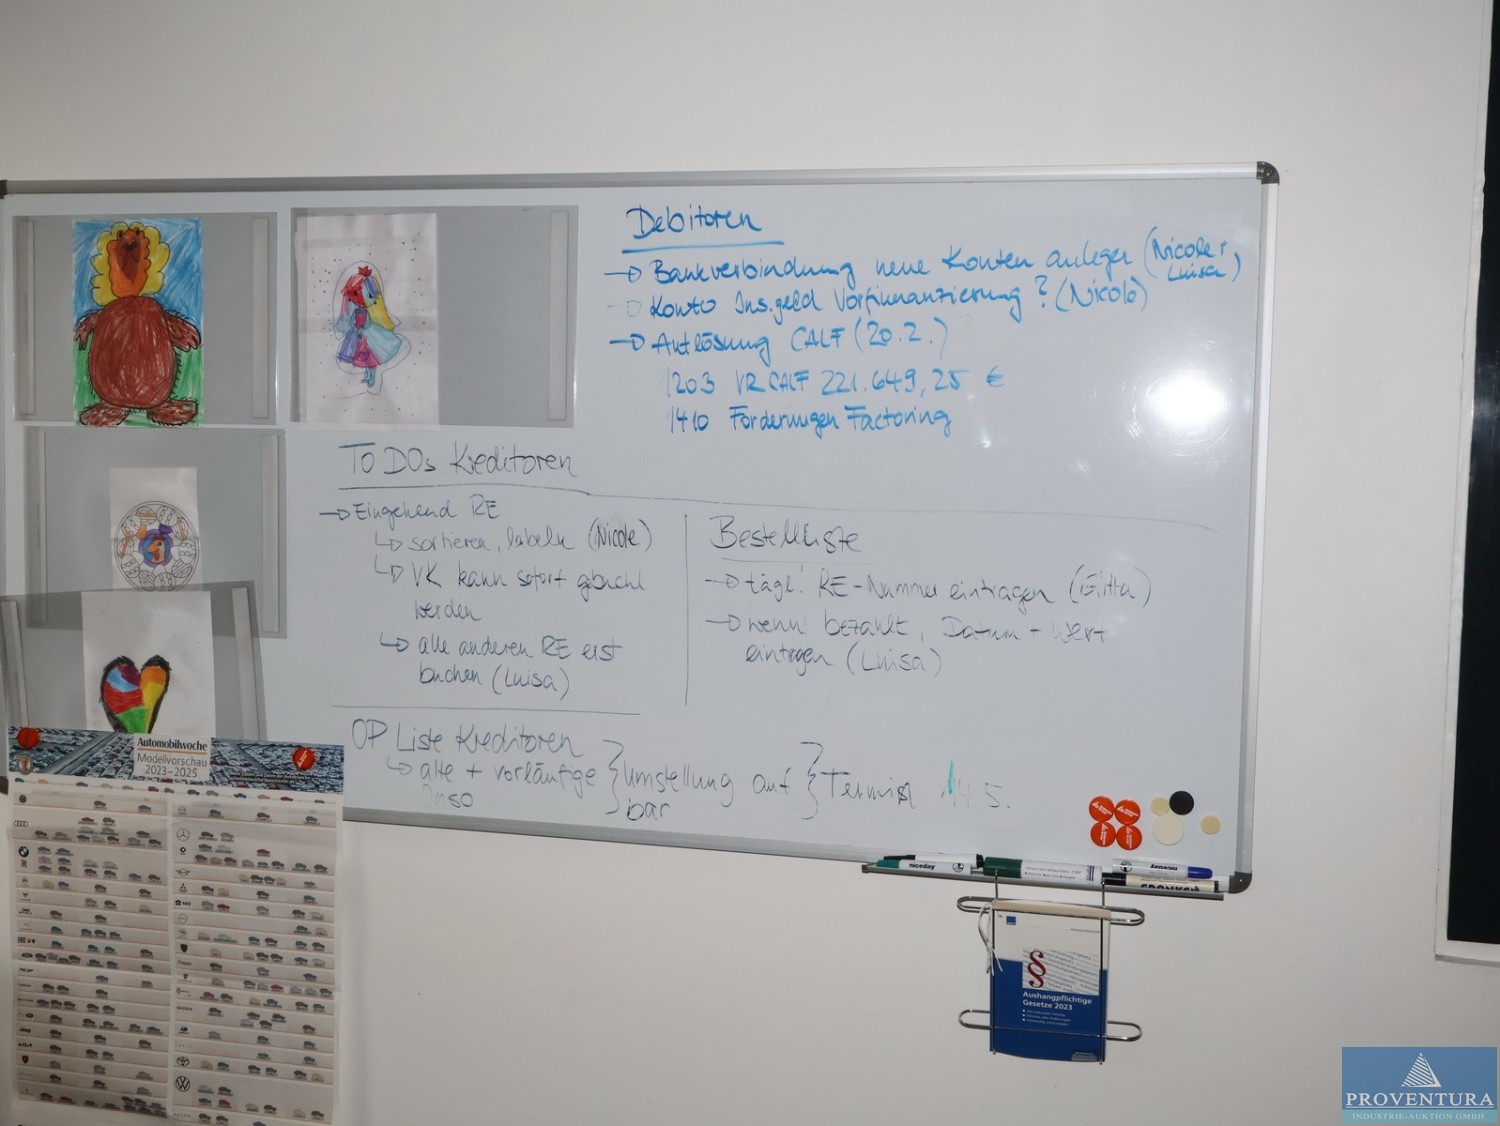 Debitoren
→ Bankverbindung neue Konten anlegen (Nicole +
Luisa)
Konto Ins.geld Vorfinanzierung? (Nicole)
→ Auflösung CALF (20.2.)
1203 VR CALF 221.649,25 €
1410 Forderungen Factoring
TO DOs Kreditoren
→ Eingehend RE
↳ sortieren, labeln (Nicole)
↳ VK kann sofort gebucht
werden
↳ alle anderen RE erst
buchen (Luisa)
Bestellliste
→ tägl. RE-Nummer eintragen (Gitta)
→ wenn bezahlt, Datum + Wert
eintragen (Luisa)
OP Liste Kreditoren
↳ alte + vorläufige } Umstellung auf } Termin 14.5.
Inso bar
Automobilwoche
Modellvorschau
2023–2025
niceday
niceday
Aushangpflichtige
Gesetze 2023
PROVENTURA
INDUSTRIE-AUKTION GMBH